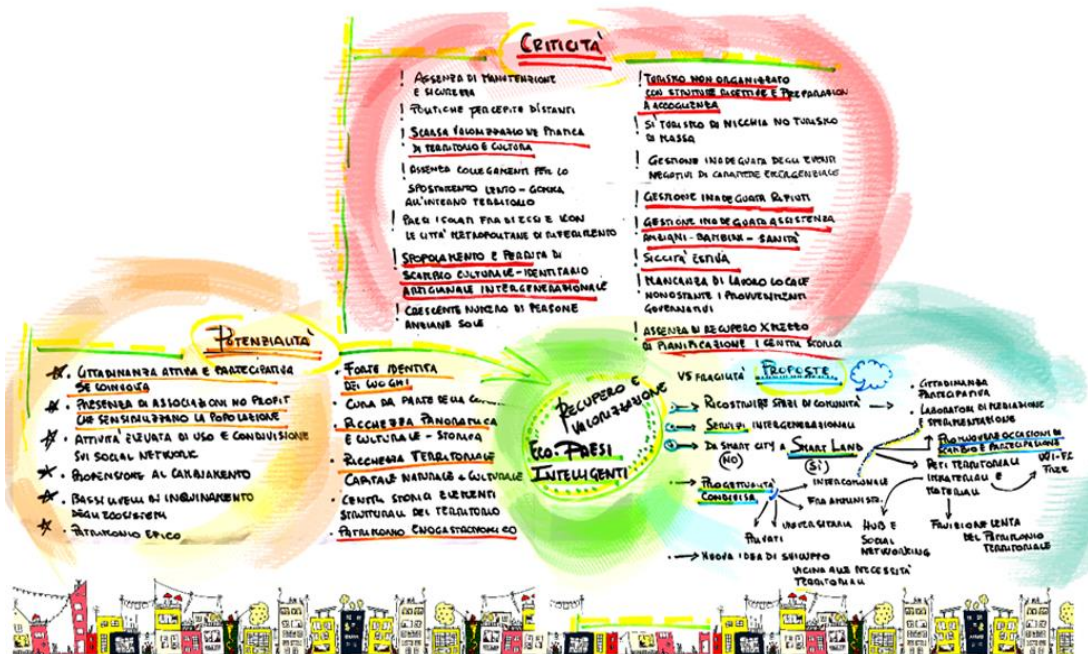 CRITICITÀ
! ASSENZA DI MANUTENZIONE
E SICUREZZA
! POLITICHE PERCEPITE DISTANTI
! SCARSA VALORIZZAZIONE PRATICA
DI TERRITORIO E CULTURA
! ASSENZA COLLEGAMENTI PER LO
SPOSTAMENTO LENTO - GOMMA
ALL'INTERNO TERRITORIO
! PAESI ISOLATI FRA DI ESSI E CON
LE CITTÀ METROPOLITANE DI RIFERIMENTO
! SPOPOLAMENTO E PERDITA DI
SCAMBIO CULTURALE - IDENTITARIO
ARTIGIANALE INTERGENERAZIONALE
! CRESCENTE NUMERO DI PERSONE
ANZIANE SOLE
! TURISMO NON ORGANIZZATO
CON STRUTTURE RICETTIVE E PREPARAZION
A ACCOGLIENZA
! SI TURISMO DI NICCHIA NO TURISMO
DI MASSA
! GESTIONE INADEGUATA DEGLI EVENTI
NEGATIVI DI CARATTERE EMERGENZIALE
! GESTIONE INADEGUATA RIFIUTI
! GESTIONE INADEGUATA ASSISTENZA
ANZIANI - BAMBINI - SANITÀ
! SICCITÀ ESTIVA
! MANCANZA DI LAVORO LOCALE
NONOSTANTE I PROVVEDIMENTI
GOVERNATIVI
! ASSENZA DI RECUPERO X MEZZO
DI PIANIFICAZIONE I CENTRI STORICI
POTENZIALITÀ
• CITTADINANZA ATTIVA E PARTECIPATIVA
SE COINVOLTA
• PRESENZA DI ASSOCIAZIONI NO PROFIT
CHE SENSIBILIZZANO LA POPOLAZIONE
• ATTIVITÀ ELEVATA DI USO E CONDIVISIONE
SUI SOCIAL NETWORK
• PROPENSIONE AL CAMBIAMENTO
• BASSI LIVELLI DI INQUINAMENTO
DEGLI ECOSISTEMI
• PATRIMONIO EPICO
• FORTE IDENTITÀ
DEI LUOGHI
• CURA DA PARTE DELLA
• RICCHEZZA PANORAMICA
E CULTURALE - STORICA
• RICCHEZZA TERRITORIALE
CAPITALE NATURALE + CULTURALE
• CENTRI STORICI ELEMENTI
STRUTTURALI DEL TERRITORIO
• PATRIMONIO ENOGASTRONOMICO
RECUPERO E
VALORIZZAZIONE
ECO-PAESI
INTELLIGENTI
VS FRAGILITÀ
PROPOSTE
RICOSTRUIRE SPAZI DI COMUNITÀ
SERVIZI INTERGENERAZIONALI
DA SMART CITY A SMART LAND
(NO) (SÌ)
• PROGETTUALITÀ
CONDIVISA
INTERCOMUNALE
FRA AMMINISTR.
UNIVERSITARIA
PRIVATI
• NUOVA IDEA DI SVILUPPO
VICINA ALLE NECESSITÀ
TERRITORIALI
• CITTADINANZA
PARTECIPATIVA
• LABORATORI DI MEDIAZIONE
E SPERIMENTAZIONE
PROMUOVERE OCCASIONI DI
SCAMBIO E PARTECIPAZIONE
RETI TERRITORIALI
IMMATERIALI E
MATERIALI
WI-FI
FREE
HUB E
SOCIAL
NETWORKING
FRUIZIONE LENTA
DEL PATRIMONIO
TERRITORIALE